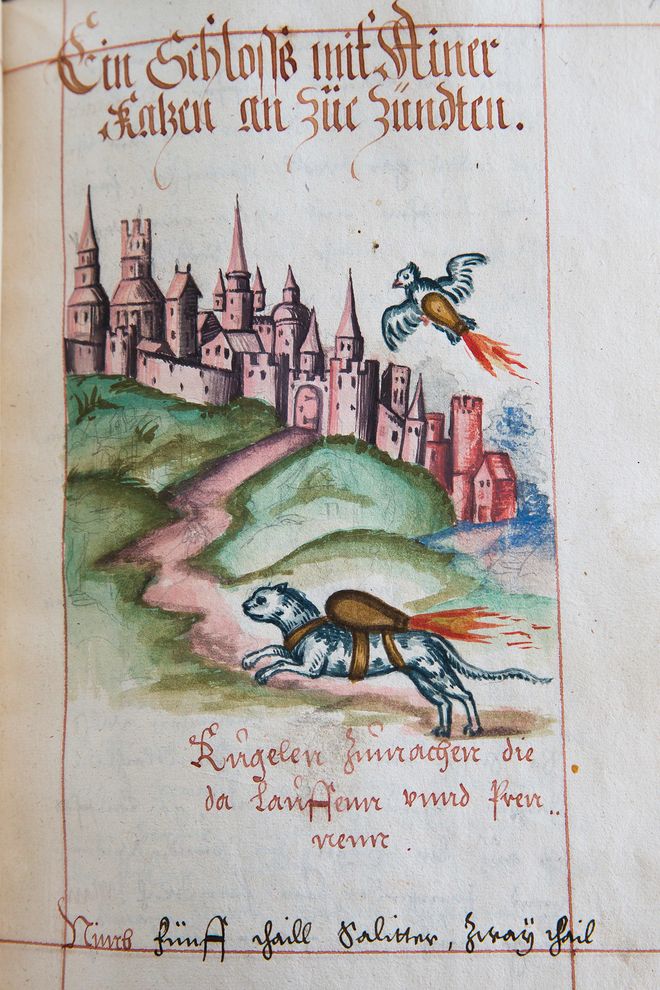 Ein Schlosß mit Ainer
Katzen an züe zündten.
Kugelen zumachen die
da lauffenn vnnd Pren¬
nenn.
Nimb fünff thaill Salitter, zway thail